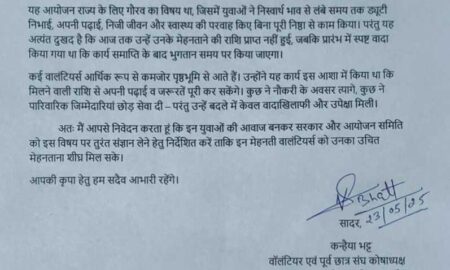 यह आयोजन राज्य के लिए गौरव का विषय था, जिसमें युवाओं ने निस्वार्थ भाव से लंबे समय तक ड्यूटी
निभाई, अपनी पढ़ाई, निजी जीवन और स्वास्थ्य की परवाह किए बिना पूरी निष्ठा से काम किया। परंतु यह
अत्यंत दुखद है कि आज तक उन्हें उनके मेहनताने की राशि प्राप्त नहीं हुई, जबकि प्रारंभ में स्पष्ट वादा
किया गया था कि कार्य समाप्ति के बाद भुगतान समय पर किया जाएगा।
कई वालंटियर्स आर्थिक रूप से कमजोर पृष्ठभूमि से आते हैं। उन्होंने यह कार्य इस आशा में किया था कि
मिलने वाली राशि से अपनी पढ़ाई व जरूरतें पूरी कर सकेंगे। कुछ ने नौकरी के अवसर त्यागे, कुछ ने
पारिवारिक जिम्मेदारियां छोड़ सेवा दी – परंतु उन्हें बदले में केवल वादाखिलाफी और उपेक्षा मिली।
अतः मैं आपसे निवेदन करता हूं कि इन युवाओं की आवाज बनकर सरकार और आयोजन समिति
को इस विषय पर तुरंत संज्ञान लेने हेतु निर्देशित करें ताकि इन मेहनती वालंटियर्स को उनका उचित
मेहनताना शीघ्र मिल सके।
आपकी कृपा हेतु हम सदैव आभारी रहेंगे।
KBhatt
सादर, 23/05/25
कन्हैया भट्ट
वॉलंटियर एवं पूर्व छात्र संघ कोषाध्यक्ष